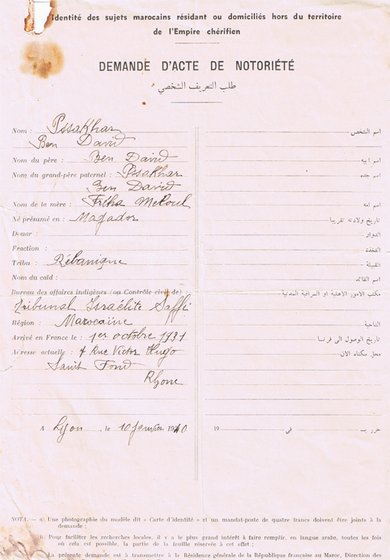 Identité des sujets marocains résidant ou domiciliés hors du territoire
de l'Empire chérifien
DEMANDE D'ACTE DE NOTORIÉTÉ
طلب التعريف الشخصي
Nom : Pssakhar اسم الشخص
Ben David
Nom du père : Ben David اسم ابيه
Nom du grand-père paternel : Pssakhar اسم جده
Ben David
Nom de la mère : Friha Meloul اسم امه
Né présumé en : Magador تاريخ ولادته تقريبا
Douar : الدوار
Fraction : الفخدة
Tribu : Rébanique القبيلة
Nom du caïd : اسم القائد
Bureau des affaires indigènes (ou Contrôle civil) de : مكتب الامور الاهلية او المراقبة المدنية
Tribunal Israélite Saffi
Région : Marocaine الناحية
Arrivé en France le : 1er octobre 1931 تاريخ الوصول الى فرنسا
Adresse actuelle : 4 Rue Victor Hugo محل سكناه الان
Saint Fond
Rhone
A Lyon, le 10 janvier 1940 19 في حرر بـ
NOTA. — a) Une photographie du modèle dit « Carte d'identité » et un mandat-poste de quatre francs doivent être joints à la
demande ;
b) Pour faciliter les recherches locales, il y a le plus grand intérêt à faire remplir, en langue arabe, toutes les fois
où cela est possible, la partie de la feuille réservée à cet effet ;
La présente demande est à transmettre à la Résidence générale de la République française au Maroc, Direction des